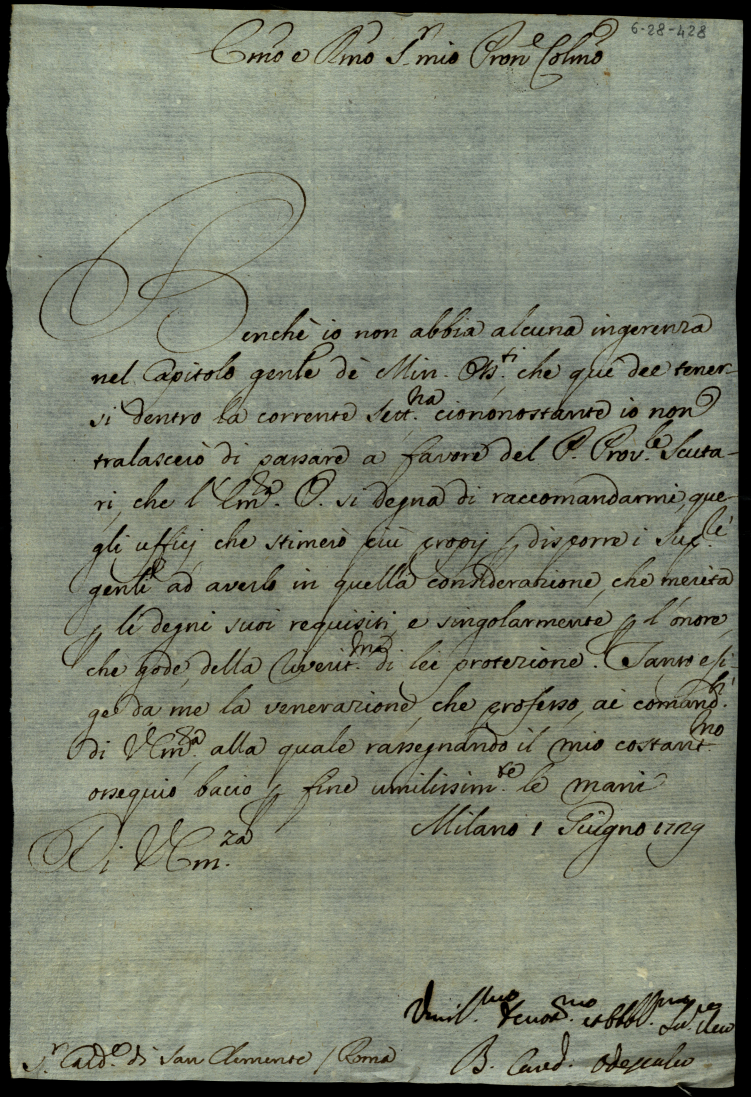 6-28-428
Emo e Rmo Sr. mio Prone Colmo
Benchè io non abbia alcuna ingerenza
nel Capitolo genle dè Min. Ossti. che qui dee tener-
si dentro la corrente settna. ciononostante io non
tralascerò di passare a favore del P. Provle. Scuta-
ri, che l'Emza. V. si degna di raccomandarmi, que-
gli ufficj che stimerò più proprj p disporre i
genli ad averlo in quella considerazione, che merita
p li degni suoi requisiti, e singolarmente p l'onore,
che gode, della riveritma. di lei protezione. Tanto esi-
ge da me la venerazione, che professo, ai comandi.
di V Emza. alla quale rassegnando il mio costantmo.
ossequio bacio p fine umilissimte. le mani
Milano 1 Giugno 1729
Di V Emza.
Umilmo. Devotmo. et obblmo. Serres vero
B. Card. Odescalco
Sr. Cardle. di San Clemente / Roma